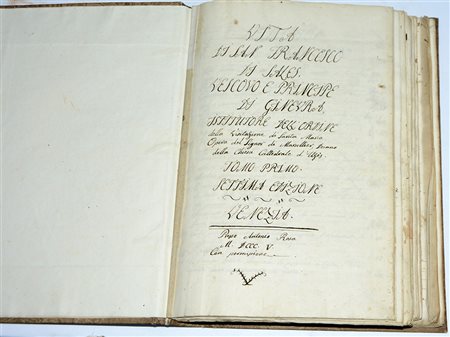 VITA
DI SAN FRANCESCO
DI SALES.
VESCOVO E PRINCIPE
DI GINEVRA
ISTITUTORE DELL'ORDINE
della Visitazione di Santa Maria
Opera del Signor di Marsollier Decano
della Chiesa Cattedrale d'Uses
TOMO PRIMO.
SETTIMA EDIZIONE
VENEZIA.
Presso Antonio Rosa
M. DCCC. V
Con permissione